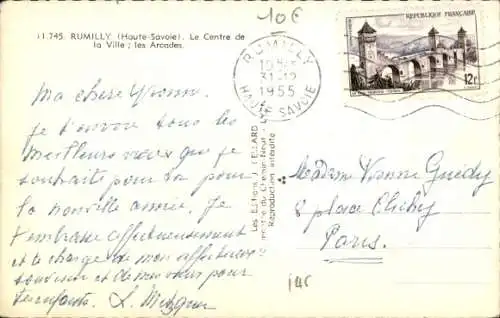 10€
11.745. RUMILLY (Haute-Savoie). Le Centre de
la Ville ; les Arcades.
RUMILLY
31-12
1955
HAUTE SAVOIE
REPUBLIQUE FRANÇAISE
12F
Ma chère Yvonne.
Je t'envoie tous les
meilleurs vœux que je
souhaite pour toi pour
la nouvelle année. Je
t'embrasse affectueusement
et te charge de mon affectueux
souvenir et de mes vœux pour
tes enfants.
Reproduction interdite
Madame Yvonne Guidy
8 place Clichy
Paris.